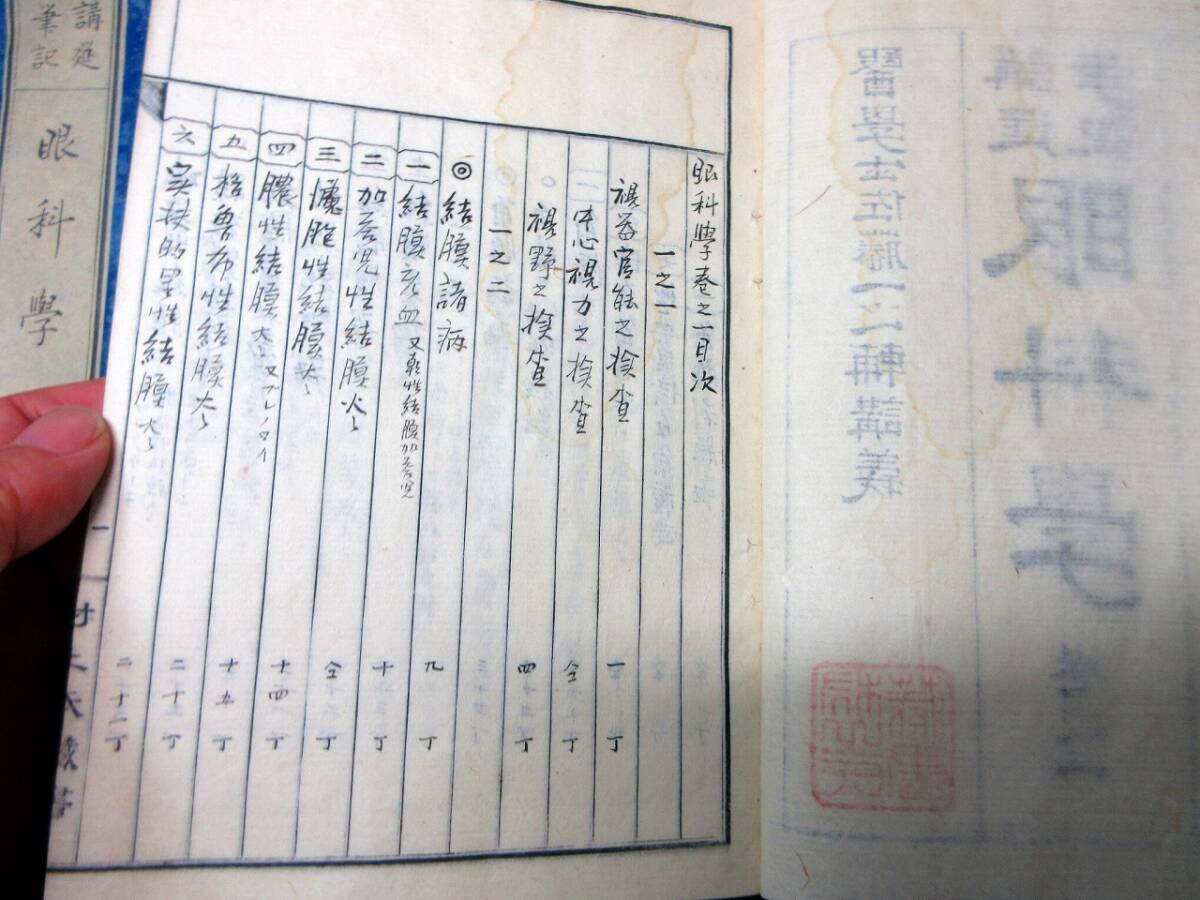 眼科學卷之一目次
一之一
視器官能之撿查 一丁
中心視力之撿查 仝丁
視野之撿查 四丁
一之二
◎結膜諸病
一 結膜充血 又乾性結膜加荅児 九丁
二 加荅児性結膜炎 十丁
三 濾胞性結膜炎 仝丁
四 膿性結膜炎 又ブレノロイ 十四丁
五 格魯布性結膜炎 十五丁
六 実扶的里性結膜炎 二十丁
二十一丁
講筵
筆記
眼科學
講筵
筆記
眼科學
醫學士佐藤一二輔講義